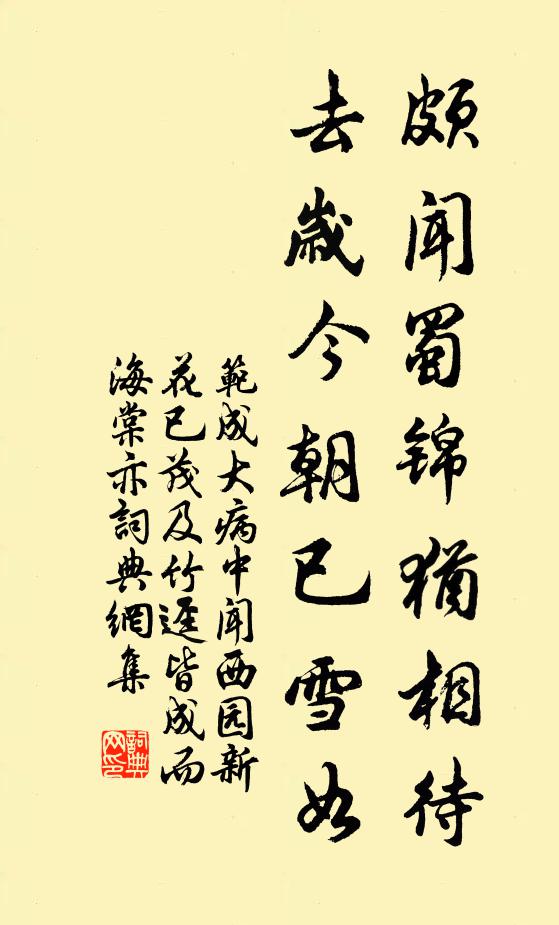 頗聞蜀錦猶相待
去歲今朝已雪如
範成大病中聞西园新
花已茂及竹逕皆成而
海棠亦詞典網集
詞典网印